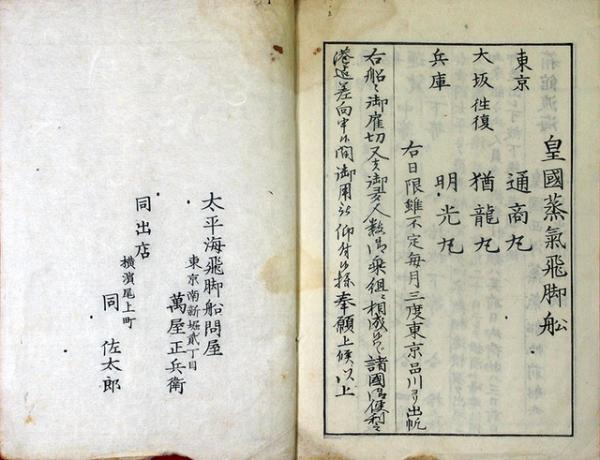 皇國蒸氣飛脚舩
東京 通高丸
大坂 徃復 猶龍丸
兵庫 明光丸
右日限雖不定毎月三度東京品川ヨリ出帆
右船々御雇切又者御多人数御乗組ニ相成候ハヾ諸國御便利之
港迄差向申候間御用被仰付候様奉願上候以上
太平海飛脚船問屋
東京南新堀貳丁目
萬屋正兵衛
同出店
横濱尾上町
同 佐太郎